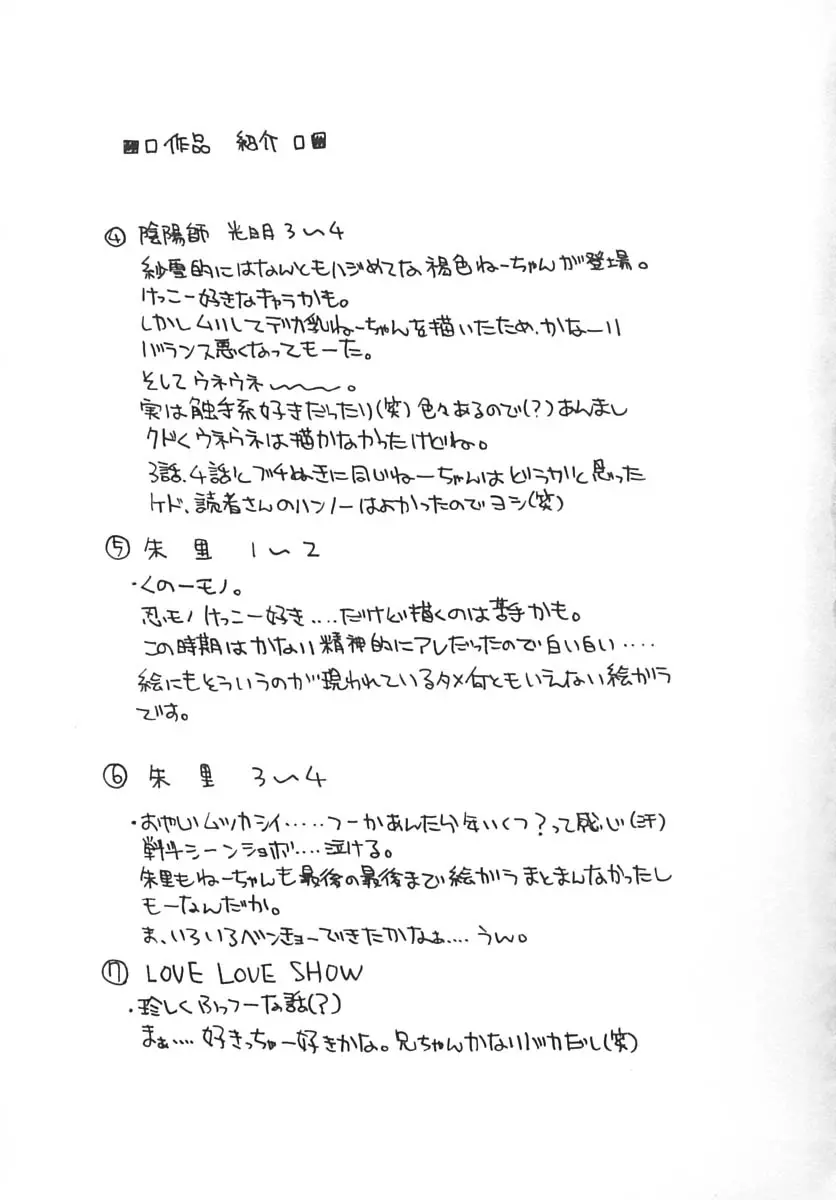 ■□作品 紹介□■
④ 陰陽師 光明3〜4
紗雪的にはなんともハジめてな、褐色ねーちゃんが登場。
けっこー好きなキャラかも。
しかしムリしてデカ乳ねーちゃんを描いたため、かなーり
バランス悪くなってもーた。
そしてウネウネ〜〜〜。
実は触手系好きだったり(笑)色々あるので(?)あんまし
クドくウネウネは描かなかったけどね。
3話、4話とブチぬきに同じねーちゃんはどうかと思った
ケド、読者さんのハンノーはよかったのでヨシ(笑)
⑤ 朱里 1〜2
・くの一モノ。
忍モノけっこー好き‥‥だけど描くのは苦手かも。
この時期はかなり精神的にアレだったので白い白い‥‥
絵にもそういうのが現われているタメ何ともいえない絵がら
です。
⑥ 朱里 3〜4
・おやじムツカシイ‥‥‥つーかあんたら年いくつ?って感じ(汗)
戦斗シーンショボ‥‥泣ける。
朱里もねーちゃんも最後の最後まで絵がらまとまんなかったし
もーなんだか。
ま、いろいろベンキョーできたかなぁ‥‥うん。
⑦ LOVE LOVE SHOW
・珍しくふっつーな話(?)
まぁ‥‥好きっちゃー好きかな。兄ちゃんかなりバカだし(笑)